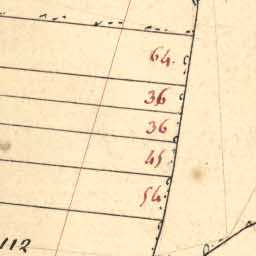 64.
36
36
45
54
112